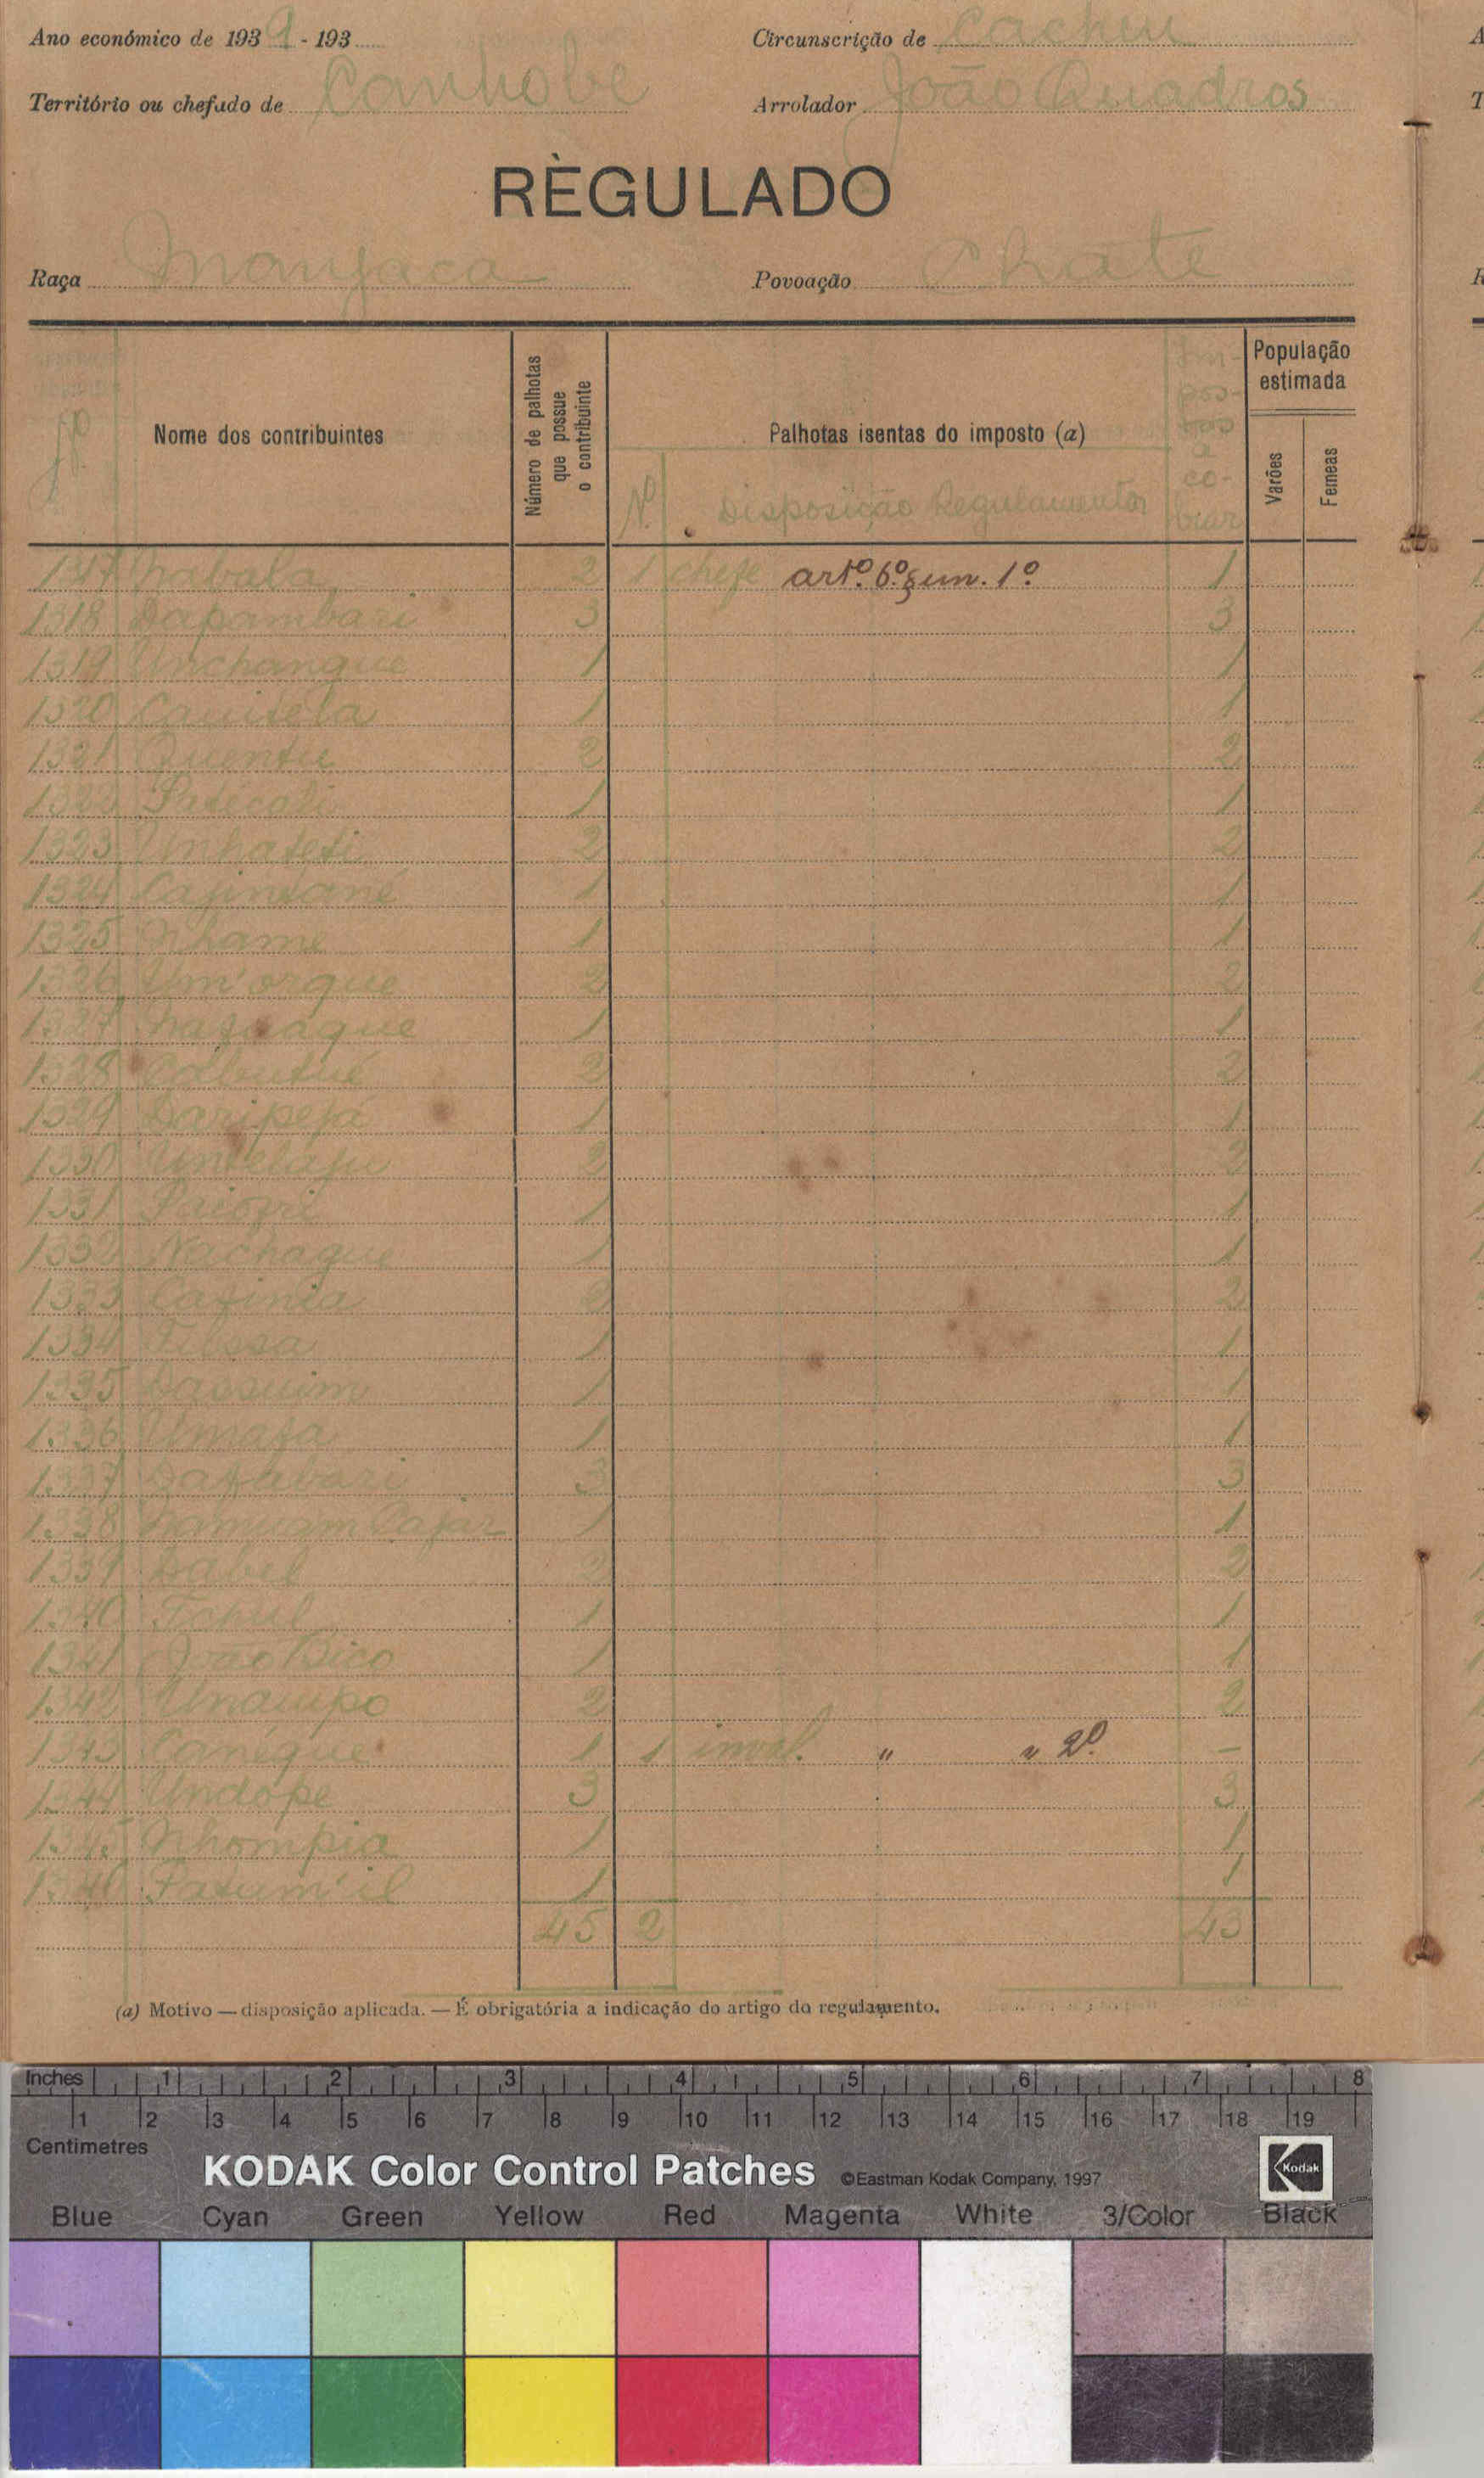 Ano económico de 1939 - 193
Circunscrição de Cacheu
Território ou chefado de Canhobe
Arrolador João Quadros
RÈGULADO
Raça Manjaca
Povoação Chate
Nome dos contribuintes
Número de palhotas que possue o contribuinte
Palhotas isentas do imposto (a)
Nº. Disposição Regulamentar
Im-
pos-
tos
a
co-
brar
População estimada
Varões
Femeas
1317 Nabala 2 1 chefe artº. 6º. § un. 1º 1
1318 Dapambari 3 3
1319 Unchangue 1 1
1320 1 1
1321 Quentu 2 2
1322 Patécali 1 1
1323 Unhateti 2 2
1324 1 1
1325 Nhame 1 1
1326 Um'orque 2 2
1327 1 1
1328 2 2
1329 Daripejá 1 1
1330 2 2
1331 1 1
1332 Nachague 1 1
1333 2 2
1334 1 1
1335 1 1
1336 Umafa 1 1
1337 Dafabari 3 3
1338 1 1
1339 Dabel 2 2
1340 Tchul 1 1
1341 João Bico 1 1
1342 Unaupo 2 2
1343 Canégue 1 1 inval. " " 2º. –
1344 Undópe 3 3
1345 Nhompia 1 1
1346 Fatum'il 1 1
45 2 43
(a) Motivo — disposição aplicada. — É obrigatória a indicação do artigo do regulamento.
Inches 1 2 3 4 5 6 7 8
1 2 3 4 5 6 7 8 9 10 11 12 13 14 15 16 17 18 19
Centimetres
KODAK Color Control Patches ©Eastman Kodak Company, 1997
Kodak
Blue Cyan Green Yellow Red Magenta White 3/Color Black